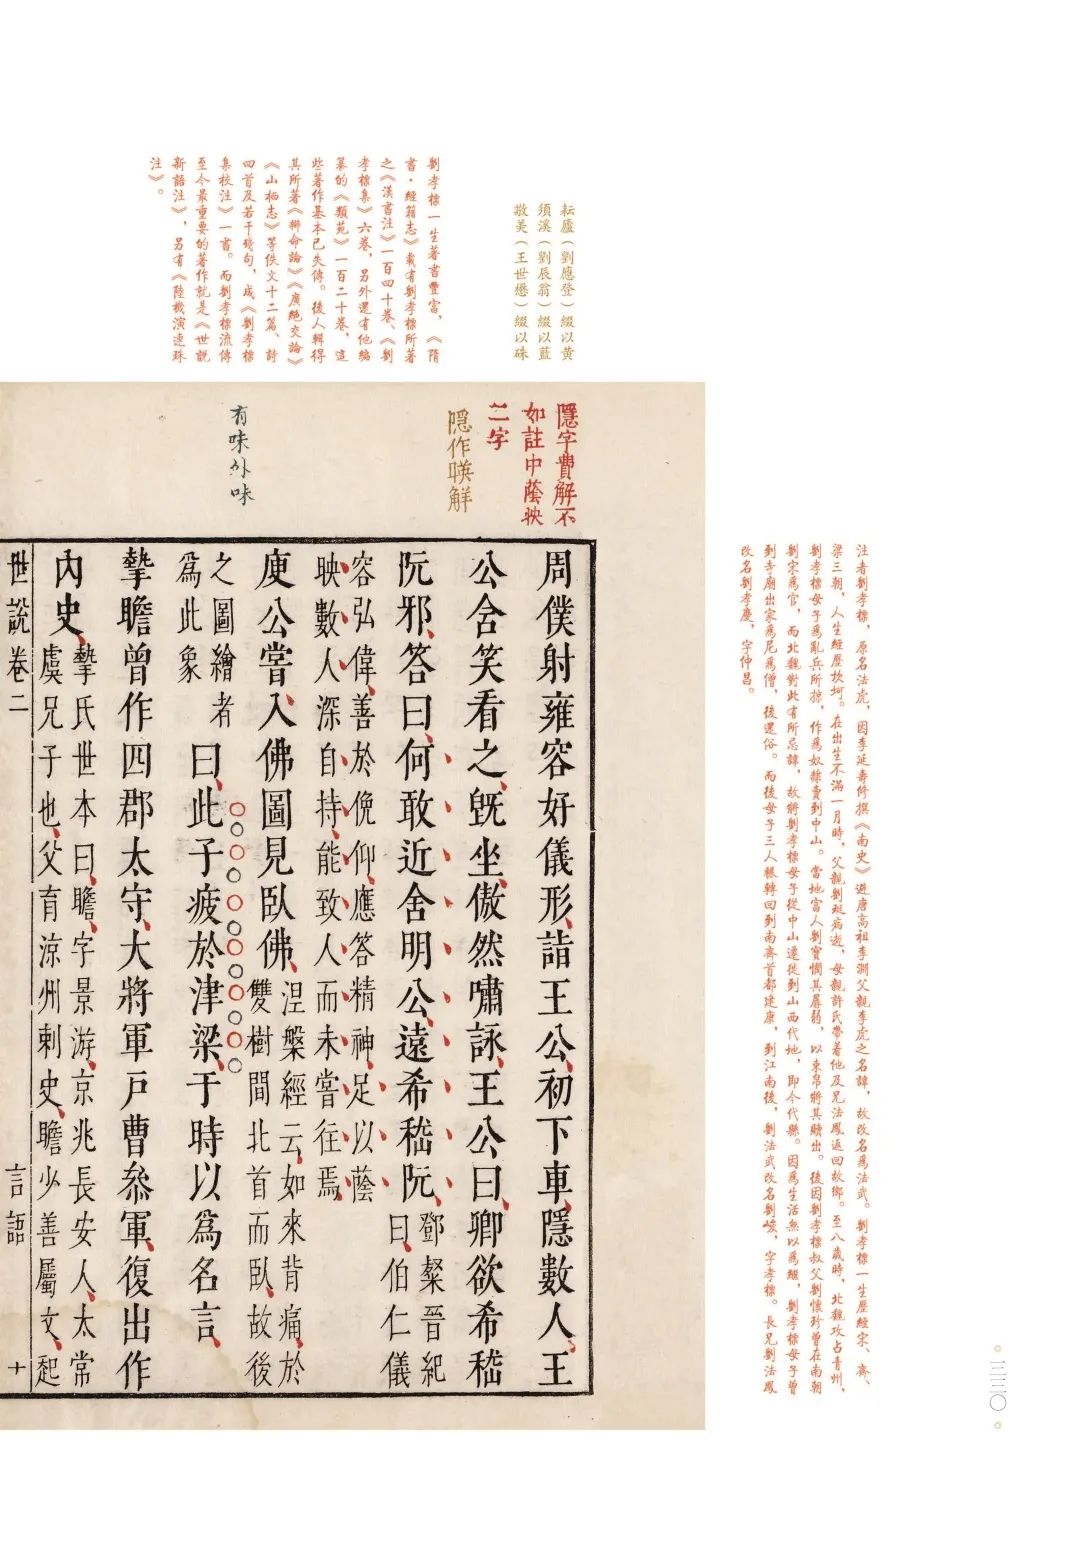 注者劉孝標，原名法虎，因李延壽修撰《南史》避唐高祖李淵父親李虎之名諱，故改名爲法武。劉孝標一生歷經宋、齊、
梁三朝，人生經歷坎坷。在出生不滿一月時，父親劉珽病逝，母親許氏帶着他及兄法鳳返回故鄉。至八歲時，北魏攻占青州，
劉孝標母子爲亂兵所掠，作爲奴隸賣到中山。當地富人劉實憫其孱弱，以束帛將其贖出。後因劉孝標叔父劉懷珍曾在南朝
劉宋爲官，而北魏對此有所忌諱，故將劉孝標母子從中山遷徙到山西代地，即今代縣。因爲生活無以爲繼，劉孝標母子曾
到寺廟出家爲尼爲僧，後還俗。而後母子三人輾轉回到南齊首都建康，到江南後，劉法武改名劉峻，字孝標。長兄劉法鳳
改名劉孝慶，字仲昌。
耘廬（劉應登）綴以黃
須溪（劉辰翁）綴以藍
敬美（王世懋）綴以硃
劉孝標一生著書豐富，《隋
書·經籍志》載有劉孝標所著
之《漢書注》一百四十卷、《劉
孝標集》六卷，另外還有他編
纂的《類苑》一百二十卷，這
些著作基本已失傳。後人輯得
其所著《辯命論》《廣絕交論》
《山栖志》等佚文十二篇、詩
四首及若干殘句，成《劉孝標
集校注》一書。而劉孝標流傳
至今最重要的著作就是《世說
新語注》，另有《陸機演連珠
注》。
隱字費解不
如註中蔭映
二字
隱作暎解
有味外味
周僕射雍容好儀形、詣王公、初下車、隱數人、王
公含笑看之、旣坐、傲然嘯詠、王公曰、卿欲希嵇
阮邪、答曰、何敢近舍明公、遠希嵇阮、
鄧粲晉紀
曰、伯仁儀
容弘偉、善於俛仰、應答精神、足以蔭
映數人、深自持、能致人、而未嘗往焉、
庾公嘗入佛圖見臥佛、
涅槃經云、如來背痛、於
雙樹間北首而臥、故後
之圖繪者
爲此象
曰、此子疲於津梁、于時以爲名言、
摯瞻曾作四郡太守、大將軍戶曹叅軍、復出作
內史、
摯氏世本曰、瞻、字景游、京兆長安人、太常
虞兄子也、父育涼州刺史、瞻少善屬文、起
世說卷二 言語 十
三三〇